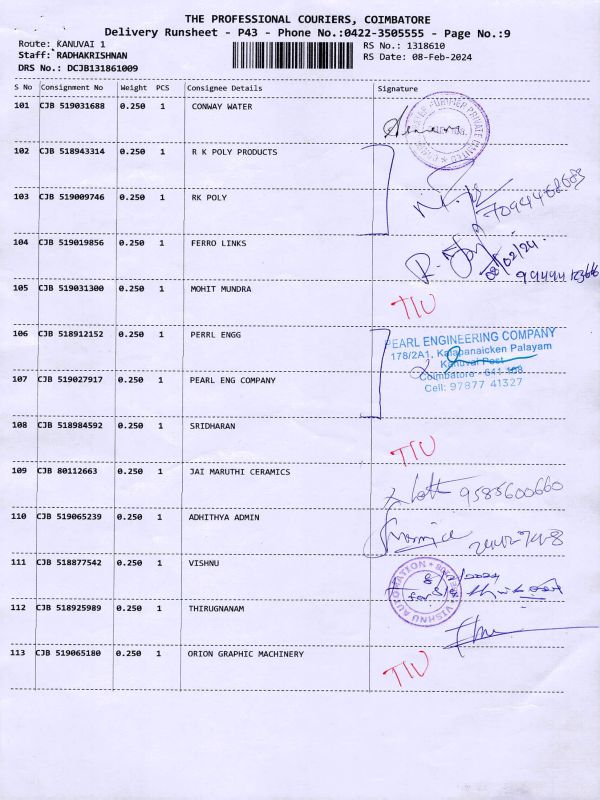 THE PROFESSIONAL COURIERS, COIMBATORE
Delivery Runsheet - P43 - Phone No.:0422-3505555 - Page No.:9
Route: KANUVAI 1 RS No.: 1318610
Staff: RADHAKRISHNAN RS Date: 08-Feb-2024
DRS No.: DCJB131861009
S No Consignment No Weight PCS Consignee Details Signature
101 CJB 519031688 0.250 1 CONWAY WATER
102 CJB 518943314 0.250 1 R K POLY PRODUCTS
103 CJB 519009746 0.250 1 RK POLY
104 CJB 519019856 0.250 1 FERRO LINKS
08/02/24
105 CJB 519031300 0.250 1 MOHIT MUNDRA
106 CJB 518912152 0.250 1 PERRL ENGG
PEARL ENGINEERING COMPANY
178/2A1, Kalapanaicken Palayam
Kanuvai Post
Coimbatore - 641 108
Cell: 97877 41327
107 CJB 519027917 0.250 1 PEARL ENG COMPANY
108 CJB 518984592 0.250 1 SRIDHARAN
109 CJB 80112663 0.250 1 JAI MARUTHI CERAMICS 9585600660
110 CJB 519065239 0.250 1 ADHITHYA ADMIN
111 CJB 518877542 0.250 1 VISHNU
VISHNU AUTOMATION
112 CJB 518925989 0.250 1 THIRUGNANAM
113 CJB 519065180 0.250 1 ORION GRAPHIC MACHINERY